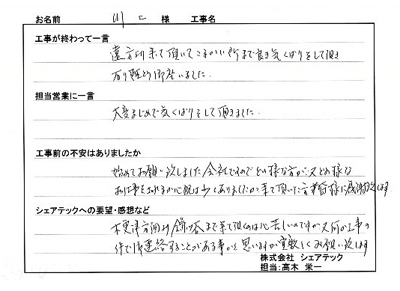 お名前 川上 様 工事名
工事が終わって一言
遠方から来て頂いてこまかい所まで良き気くばりをして頂き
有り難う御座いました。
担当営業に一言
大変まじめで気くばりをして頂きました。
工事前の不安はありましたか
始めてお願い致しました会社ですのでどの様な方が又どの様な
お仕事をされるか心配は少しありましたが来て頂いた方 皆様に感謝致します
シェアテックへの要望・感想など
木更津方面から 迄来て頂くのは心苦しいのですが又何か工事の
件で御連絡することがある事かと思いますが宜敷くお願い致します
株式会社 シェアテック
担当:高木 栄一